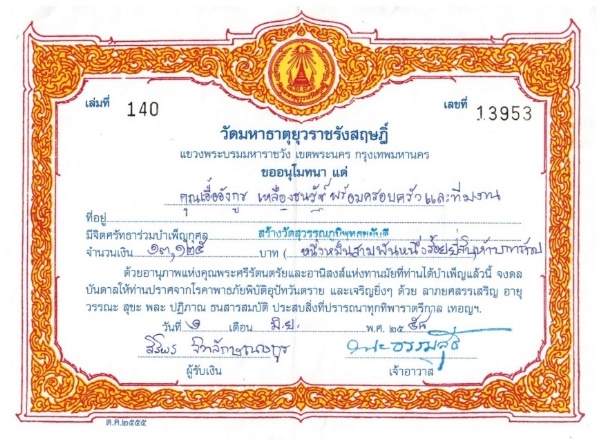 เล่มที่ 140 เลขที่ 13953
วัดมหาธาตุยุวราชรังสฤษฎิ์
แขวงพระบรมมหาราชวัง เขตพระนคร กรุงเทพมหานคร
ขออนุโมทนา แด่
คุณเอื้ออังกูร เหลืองธนรัช พร้อมครอบครัวและทีมงาน
ที่อยู่
มีจิตศรัทธาร่วมบำเพ็ญกุศล สร้างวัดสุวรรณภูมิพุทธชยันตี
จำนวนเงิน ๑๓,๑๒๕ บาท ( หนึ่งหมื่นสามพันหนึ่งร้อยยี่สิบห้าบาทถ้วน
ด้วยอานุภาพแห่งคุณพระศรีรัตนตรัยและอานิสงส์แห่งทานมัยที่ท่านได้บำเพ็ญแล้วนี้ จงดล
บันดาลให้ท่านปราศจากโรคาพาธภัยพิบัติอุปัทวันตราย และเจริญยิ่งๆ ด้วย ลาภยศสรรเสริญ อายุ
วรรณะ สุขะ พละ ปฏิภาณ ธนสารสมบัติ ประสบสิ่งที่ปรารถนาทุกทิพาราตรีกาล เทอญฯ.
วันที่ ๑ เดือน มิ.ย. พ.ศ. ๒๕
ผู้รับเงิน เจ้าอาวาส
ต.ค.๒๕๕๕